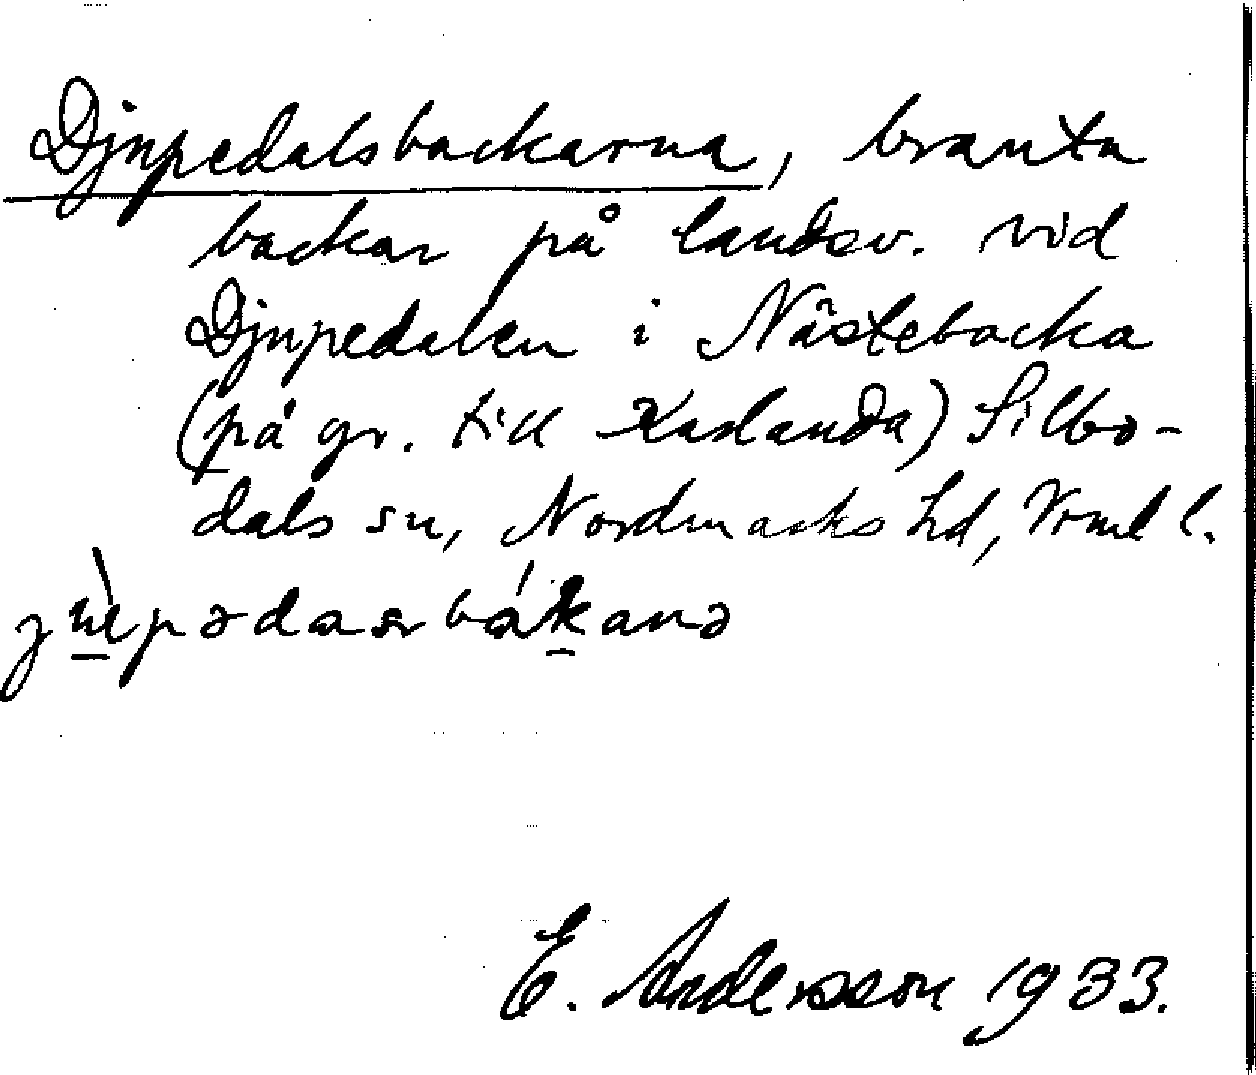 Djupedalsbackarna, branta
backar på landsv. vid
Djupedalen i Nästebacka
(på gr. till Kaslanda) Silbo-
dals sn, Nordmarks hd, Vrml l.
E. Andersson 1933.